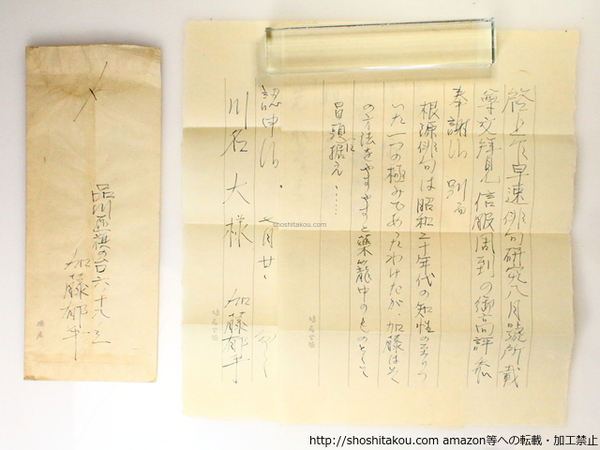 啓上 乍早速俳句研究八月號所載
尊文拝見 信服周到の御高評忝
奉謝候 別而
根源俳句は昭和二十年代の知性の至りつ
いた一つの極みであったわけだが、加藤は
の方法をやすやすと薬籠中のものとして
冒頭に据え……
認申候 七月廿
川名大様 加藤郁乎
品川区旗の台六ノ十八ノ
加藤郁乎
shoshitakou.com
http://shoshitakou.com amazon等への転載・加工禁止